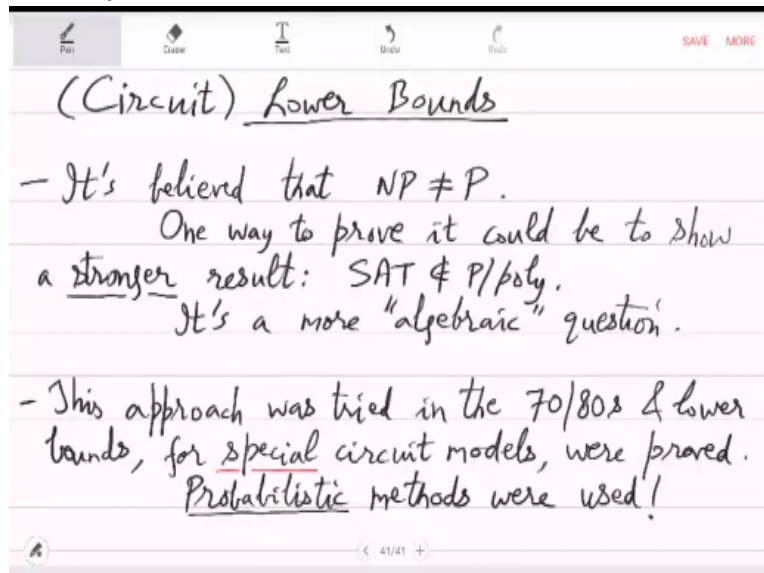 Pen Eraser Text Undo Redo SAVE MORE
(Circuit) Lower Bounds
- It's believed that NP ≠ P.
One way to prove it could be to show
a stronger result: SAT ∉ P/poly.
It's a more "algebraic" question.
- This approach was tried in the 70/80s & lower
bounds, for special circuit models, were proved.
Probabilistic methods were used!
< 41/41 +